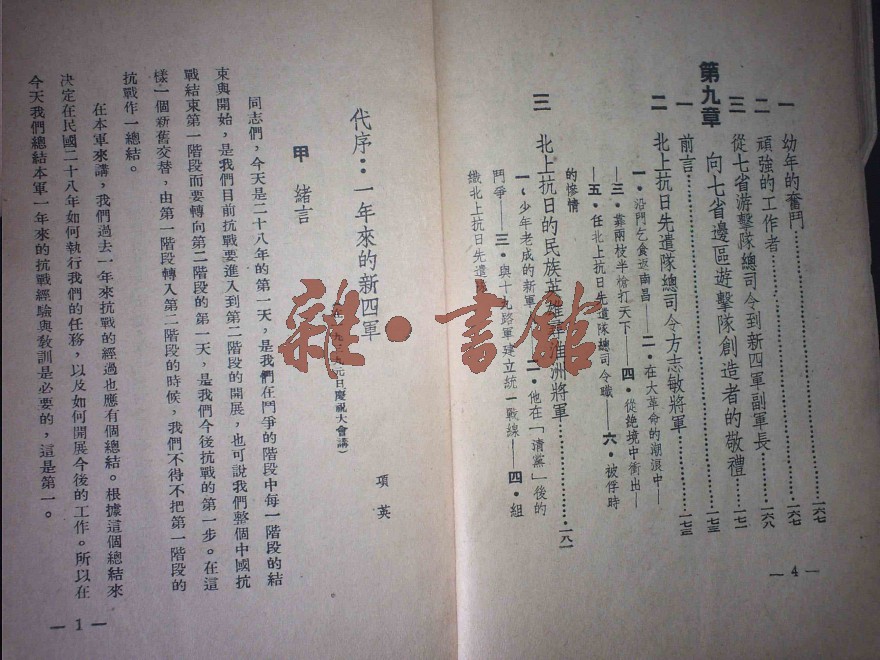 一 幼年的奮鬥…………一六七
二 頑強的工作者…………一六七
三 從七省游擊隊總司令到新四軍副軍長…………一六八
第九章 向七省邊區遊擊隊創造者的敬禮…………一七一
一 前言…………一七三
二 北上抗日先遣隊總司令方志敏將軍…………一七三
一・沿門乞食返南昌——二・在大革命的潮浪中——
三・靠兩枝半槍打天下——四・從絕境中衝出——
五・任北上抗日先遣隊總司令職——六・被俘時
的慘情
三 北上抗日的民族英雄 淮洲將軍…………一八一
一・少年老成的新軍 二・他在「清黨」後的
鬥爭——三・與十九路軍建立統一戰線——四・組
織北上抗日先遣隊
— 4 —
代序：一年來的新四軍
元日慶祝大會講）
項英
甲 緒言
同志們，今天是二十八年的第一天，是我們在鬥爭的階段中每一階段的結
束與開始，是我們目前抗戰要進入到第二階段的開展，也可說我們整個中國抗
戰結束第一階段而要轉向第二階段的第一天，是我們今後抗戰的第一步。在這
樣一個新舊交替，由第一階段轉入第二階段的時候，我們不得不把第一階段的
抗戰作一總結。
在本軍來講，我們過去一年來抗戰的經過也應有個總結。根據這個總結來
决定在民國二十八年如何執行我們的任務，以及如何開展今後的工作。所以在
今天我們總結本軍一年來的抗戰經驗與教訓是必要的，這是第一。
— 1 —
雜・書館